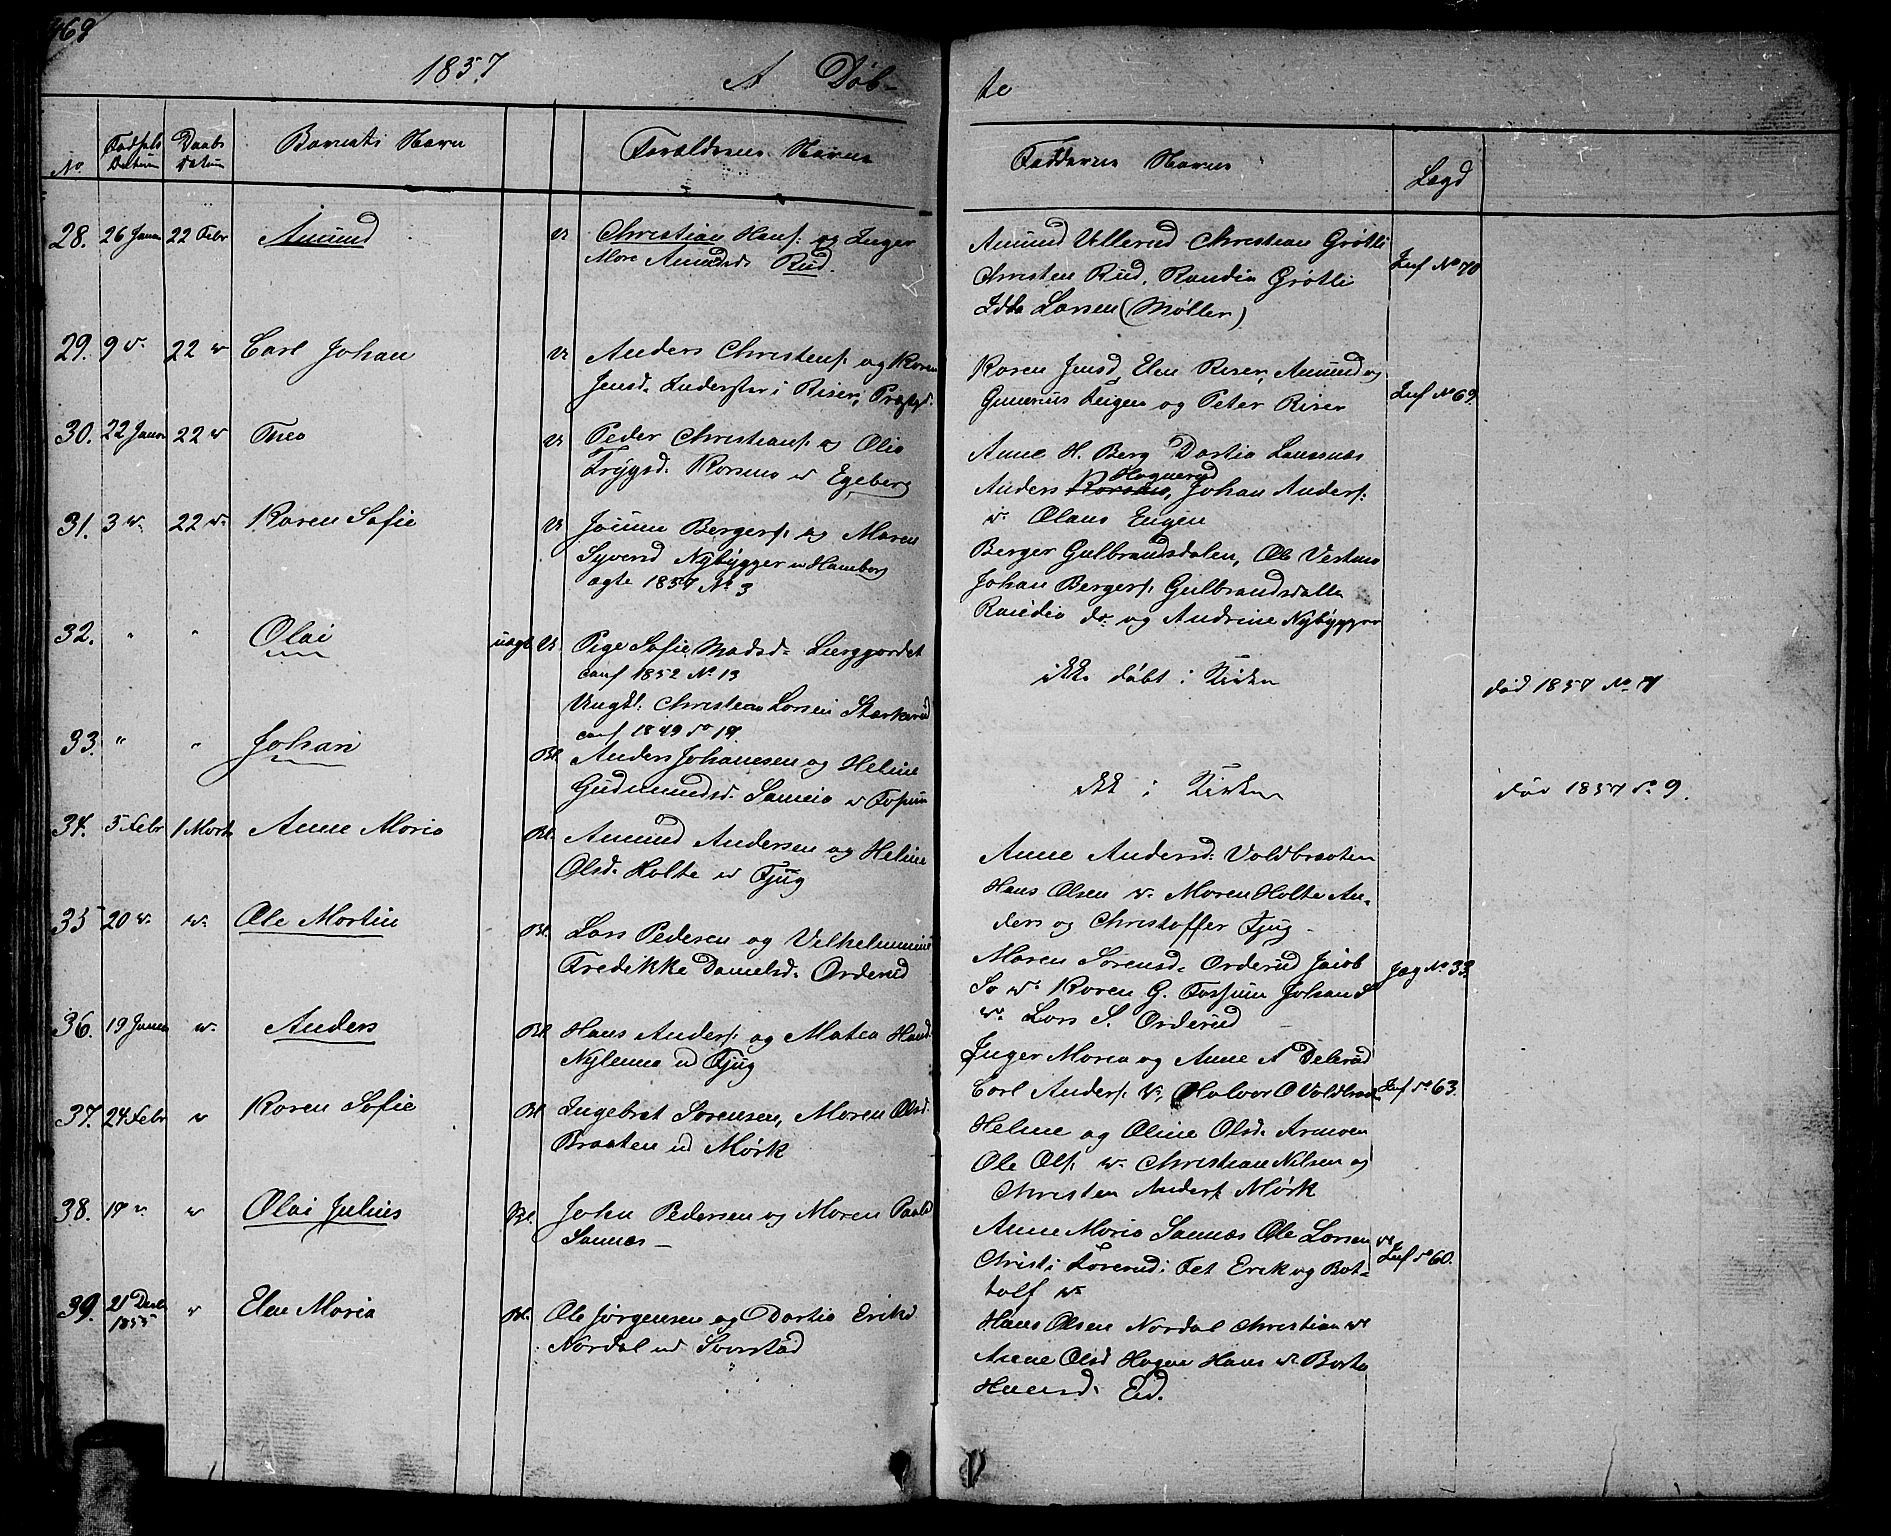 1857 A Døb- te
No. Fødsels Datum Daabs Datum Barnets Navn Forældrenes Navne Faddernes Navne Lægd
28. 26 Janu 22 Febr Amund U Christian Hans: og Inger
Mare Amundsd. Rud.
Amund Ullerud Christian Grøtli
Christen Rud, Randia Grøtli
Idda Larsen (Møller)
Inf No 70
29. 9 d. 22 d Carl Johan U Anders Christens: og Karen
Jensd. Inderster i Riser, Præstgd.
Karen Jensd, Elen Riser, Amund og
Gunerius Engen og Peter Riser
Inf No 69.
30. 22 Janu 22 d Theo U Peder Christians: og Olia
Trygsd. Korsmo u Egeberg
Anne H. Berg Dortia
Anders Korsmo, Hagnerud Johan Anders:
d. Olaus Engen
31. 3 d. 22 d. Karen Sofie U Joinne Bergers: og Maren
Syversd Nybygger u Hamborg
ægte 1857 No 3
Berger Gulbrandsdalen, Ole
Johan Bergers: Gulbrandsdalen
Randia do. og Andrine Nybygger
32. " " Olai uægt U Pige Sofie Madsd. Berggordet
conf 1852 No 13
Ungk: Christian Larsen Starkerud
conf 1849 No 14.
ikke døbt i Kirken
død 1857 No 7
33. " " Johan Bl. Anders Johannesen og Helene
Gudmundsd. Sameia u Fossum
ikke i Kirken
død 1857 No 9.
34. 5 Febr 1 Marts Anne Maria Bl. Amund Andersen og Helene
Olsd. Holte u Fjug
Anne Andersd. Voldbraaten
Hans Olsen d. Maren Holte An-
ders og Christoffer Fjug
35 20 d. d. Ole Martin Bl. Lars Pedersen og Velhelmine
Fredikke Danielsd. Orderud
Maren Sørensd. Orderud Jacob
So d. Karen G. Fossum Johan S
d. Lars S. Orderud
Jæg No 33.
36. 19 Janu d. Anders Bl. Hans Anders: og Matea Hansd.
Nylenna u Fjug
Inger Maria og Anne A Delerud
Carl Anders: d. Halvor O Voldbraa.
Inf No 63.
37. 24 Febr d Karen Sofie Bl. Ingebret Sørensen, Maren Olsd.
Braaten u Mørk
Helene og Oline Olsd. Armoen
Ole Ols: d. Christian Nilsen og
Christen Anders: Mørk
38. 14 d. d Olai Julius Bl. John Pedersen og Maren Paalsd
Sannæs
Anne Maria Sannæs Ole Larsen d.
Christi Lørerud i Fet Erik og Bot-
tolf d.
Inf No 60.
39. 21 Decb. 1855 d Elen Maria Bl. Ole Jørgensen og Dortia Eriksd
Nordal u Sverstad
Hans Olsen Nordal Christian d.
Anne Olsd Hagen Hans d. Berta
Hansd. Eid.